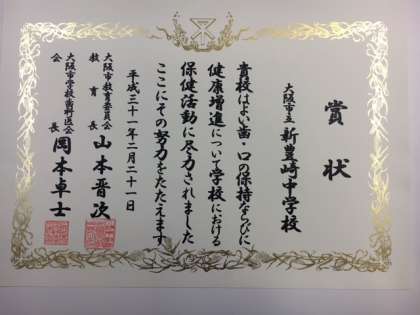 賞状
大阪市立 新豊崎中学校
貴校はよい歯・口の保持ならびに
健康増進について学校における
保健活動に尽力されました
ここにその努力をたたえます
平成三十一年二月二十一日
大阪市教育委員会
教育長 山本晋次
大阪市学校歯科医会
会長 岡本卓士